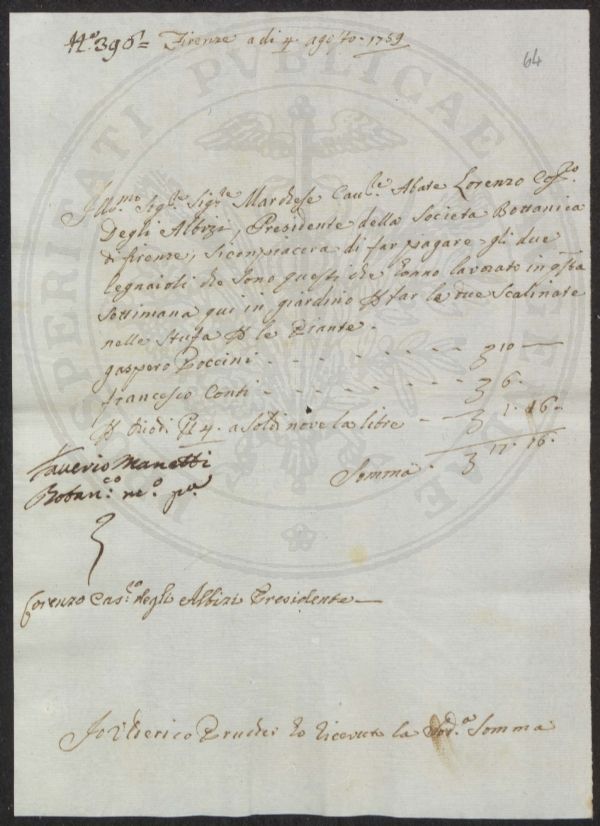 N.° 398 = Firenze a di 4. agosto. 1759
64
Ill.mo Sig.re Sig.re Marchese Cau.re Abate Lorenzo Cos.mo
Degli Albizi, Presidente della Società Bottanica
di firenze, si compiacerà di far pagare gli due
legnaioli che sono questi che anno lavorato in q.sta
Settimana qui in giardino p far le due Scalinate
nelle Stufa p le Piante.
gaspero Boccini - - - - - - - 10 —
francesco Conti - - - - - - - 6 -
p Chiodi 4. a Soldi nove la libre - - 1. 16 -
Somma - 17. 16.
Saverio Manetti
Botan.co
Lorenzo Cas.ro degli Albizi Presidente —
Io Ulderico ho ricevuto la Somma
PROSPERITATI PVBLICAE AVGENDAE